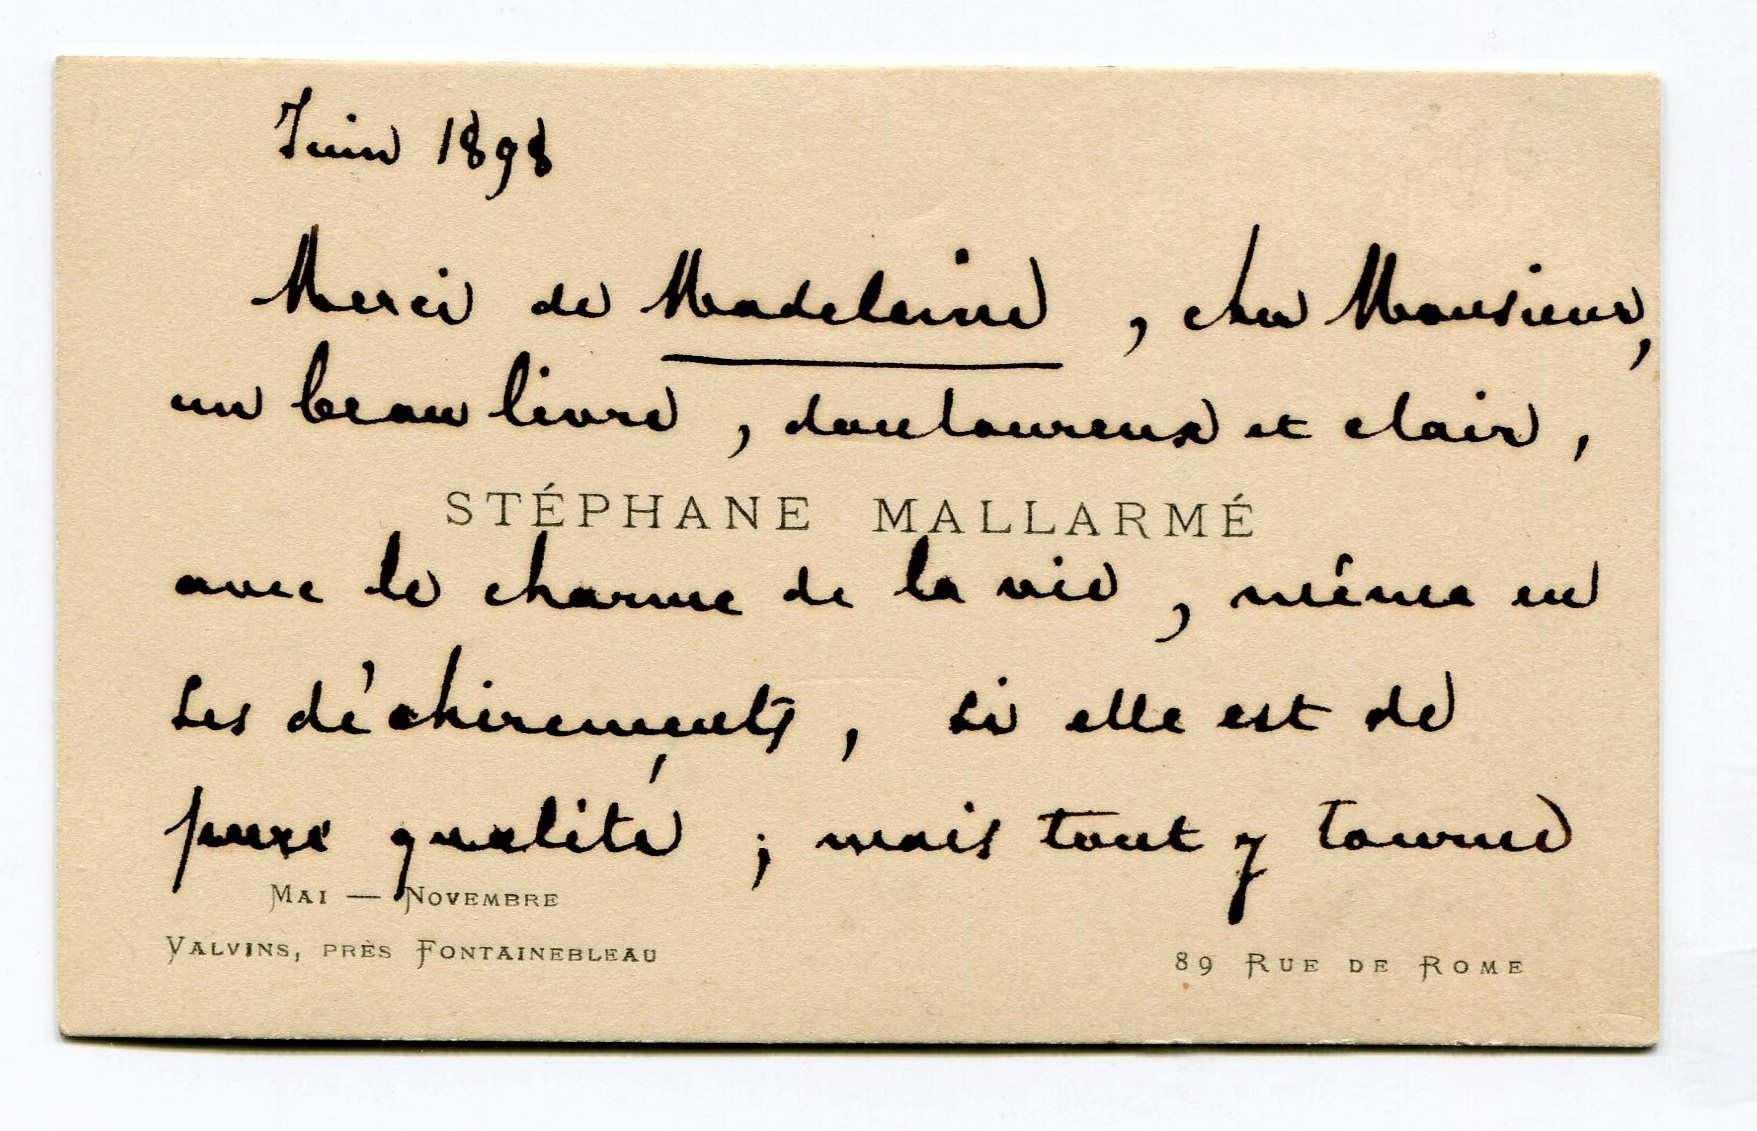 Juin 1898
Merci de Madeleine, cher Monsieur,
un beau livre, douloureux et clair,
STÉPHANE MALLARMÉ
avec le charme de la vie, même en
ses déchirements, si elle est de
pure qualité ; mais tout y tourne
MAI — NOVEMBRE
VALVINS, PRÈS FONTAINEBLEAU
89 RUE DE ROME